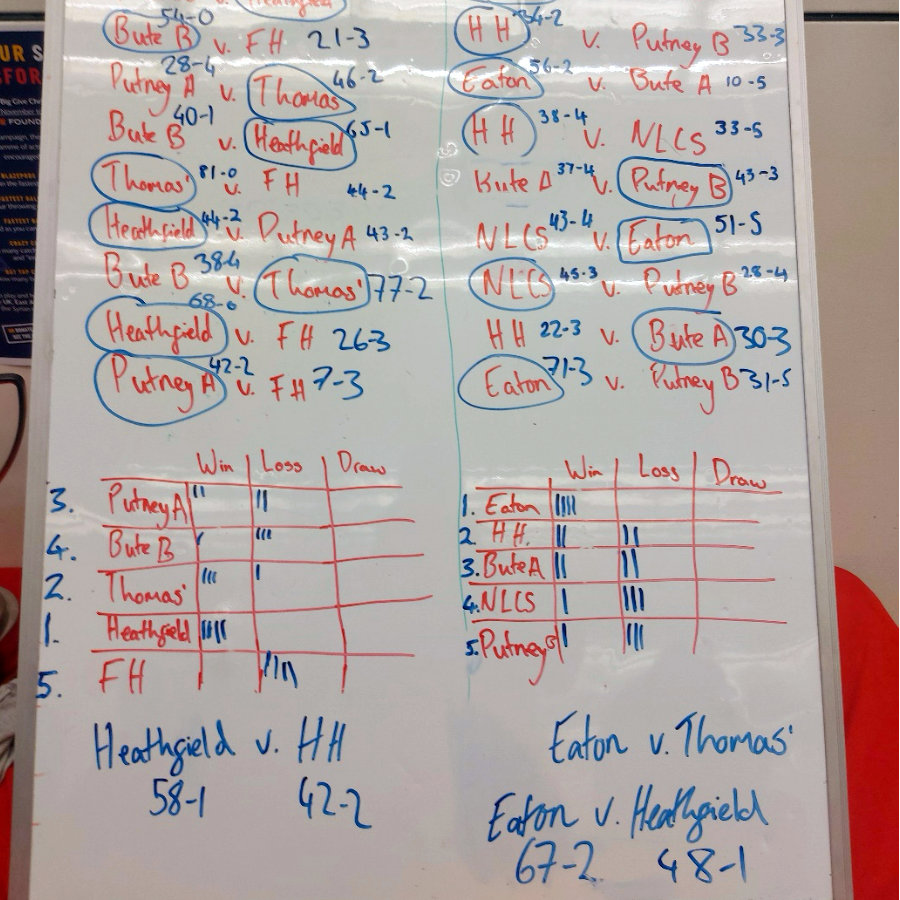 v. Heathfield
Bute B 54-0 v. FH 21-3
Putney A 28-4 v. Thomas' 46-2
Bute B 40-1 v. Heathfield 65-1
Thomas' 81-0 v. FH 44-2
Heathfield 44-2 v. Putney A 43-2
Bute B 38-4 v. Thomas' 77-2
Heathfield 68-0 v. FH 26-3
Putney A 42-2 v. FH 7-3
HH 54-2 v. Putney B 33-3
Eaton 56-2 v. Bute A 10-5
HH 38-4 v. NLCS 33-5
Bute A 37-4 v. Putney B 43-3
NLCS 43-4 v. Eaton 51-5
NLCS 45-3 v. Putney B 28-4
HH 22-3 v. Bute A 30-3
Eaton 71-3 v. Putney B 31-5
Win Loss Draw
3. Putney A
4. Bute B
2. Thomas'
1. Heathfield
5. FH
Win Loss Draw
1. Eaton
2. HH.
3. Bute A
4. NLCS
5. Putney B
Heathfield v. HH
58-1 42-2
Eaton v. Thomas'
Eaton v. Heathfield
67-2 48-1